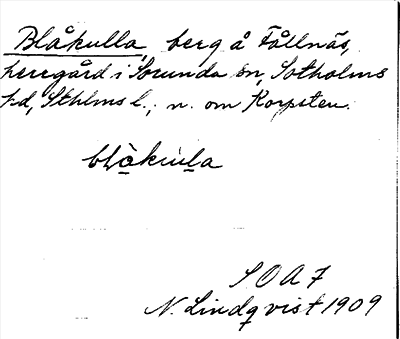 Blåkulla, berg å Fållnäs,
herregård i Sorunda sn, Sotholms
hd, Sthlms l.; n. om Korpsten.
blåkula
S O A 7
N. Lindqvist 1909